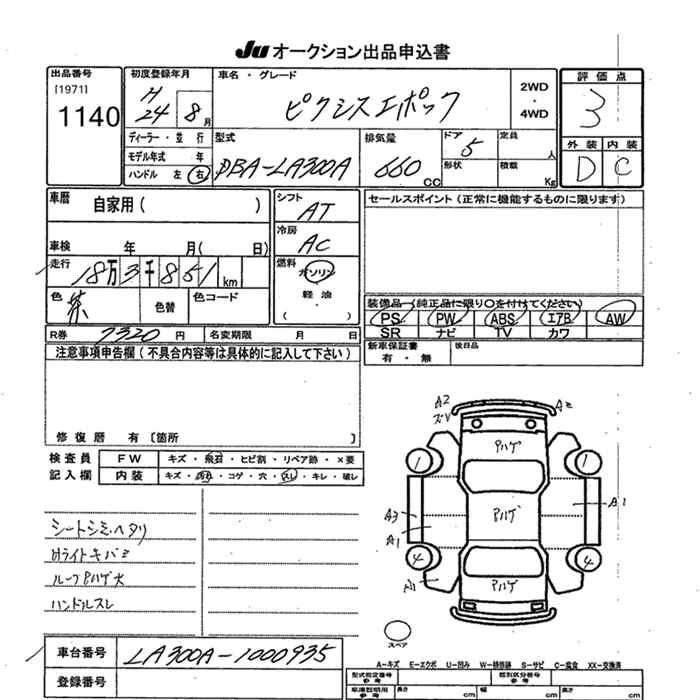 Ju オークション出品申込書
出品番号
[1971]
1140
初度登録年月
H 24 8月
車名・グレード
ピクシスエポック
2WD
・
4WD
評価点
3
外装 内装
D C
ディーラー・並行
モデル年式 年
ハンドル 左 右
型式
DBA-LA300A
排気量
660 cc
ドア 5
形状
定員 人
積載 Kg
車歴
自家用( )
車検 年 月( 日)
走行
18万3千851km
色 茶
色替
色コード
シフト
AT
冷房
AC
燃料
ガソリン
軽油
( )
セールスポイント(正常に機能するものに限ります)
装備品(純正品に限り○を付けてください)
PS PW ABS エアB AW
SR ナビ TV カワ
R券 7320 円
名変期限 月 日
新車保証書
有・無
後日品
注意事項申告欄(不具合内容等は具体的に記入して下さい)
修復歴 有 〔箇所 〕
検査員
記入欄
FW キズ・飛石・ヒビ割・リペア跡・×要
内装 キズ・汚れ・コゲ・穴・スレ・キレ・破レ
シートシミ、ヘタリ
Hライトキバミ
ルーフPハゲ大
ハンドルスレ
A2
ズV
A2
Pハゲ
1
1
A3
Pハゲ
A1
A1
4
4
A1
Pハゲ
スペア
車台番号 LA300A-1000935
登録番号
A-キズ E-エクボ U-凹み W-補修跡 S-サビ C-腐食 XX-交換済
型式指定番号
参考
類別区分番号
参考
車庫証明用
参考
長さ cm
幅 cm
高さ cm